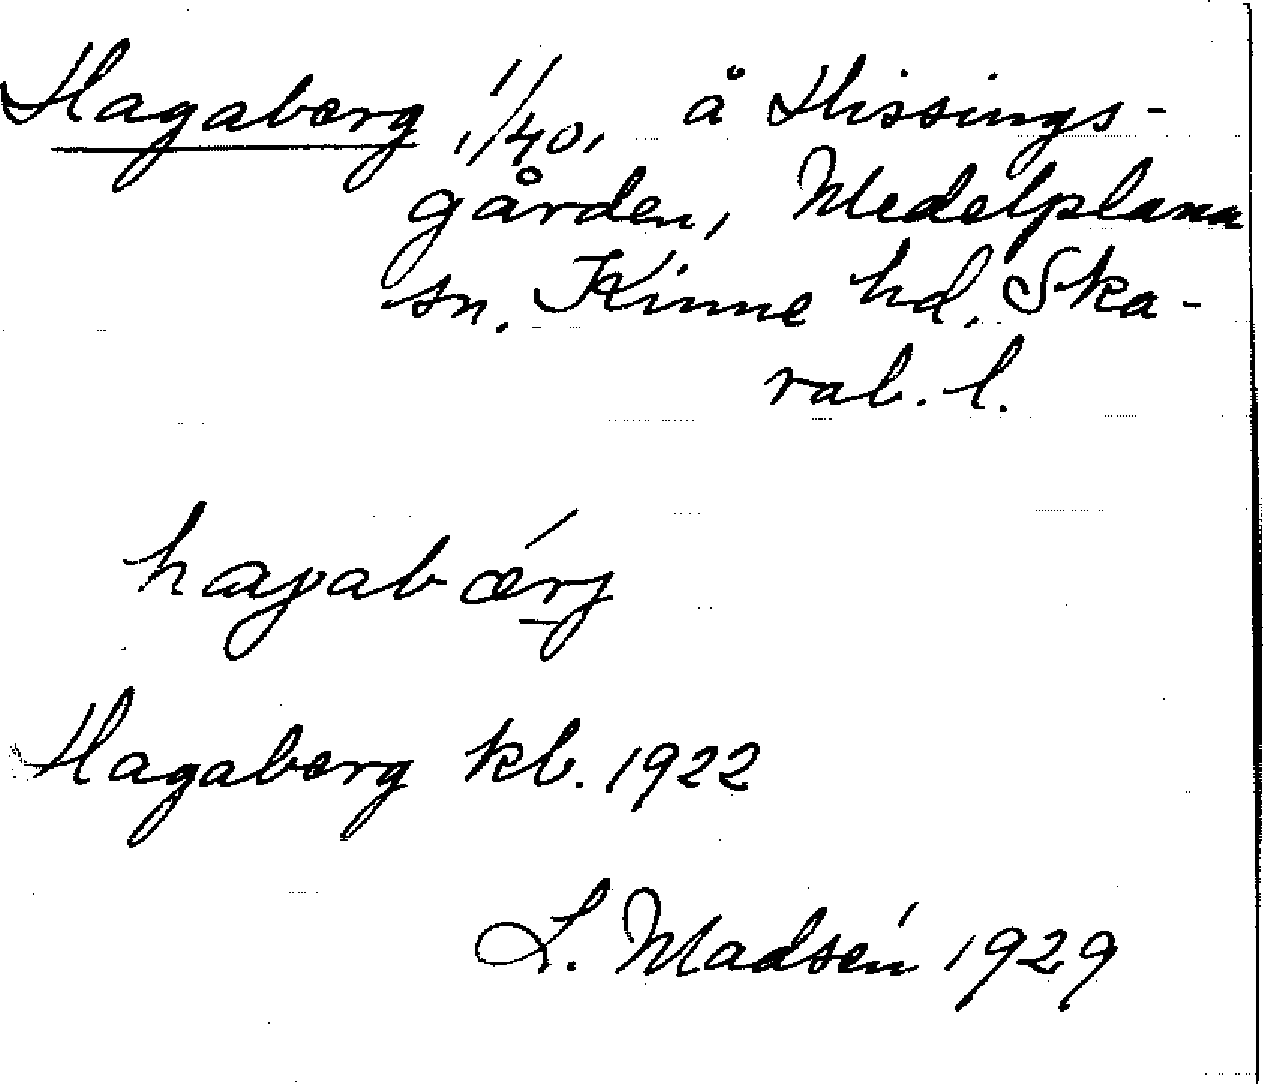 Hagaberg, 1/40, å Hissings-
gården, Medelplana
sn. Kinne hd. Ska-
rab. l.
hagabǽrj
Hagaberg kb. 1922
L. Madsén 1929